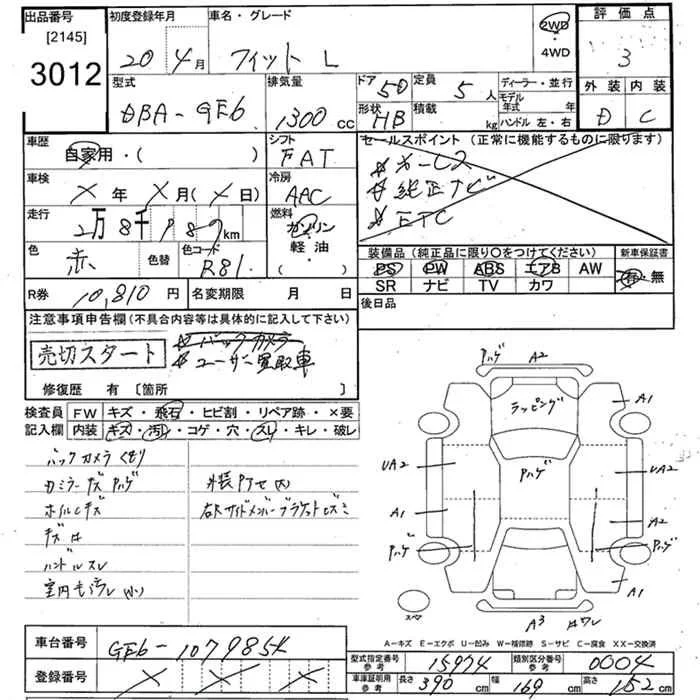 出品番号
[2145]
3012
初度登録年月
20 年 4 月
車名・グレード
フィット L
2WD
4WD
評価点
3
外装 内装
D C
型式
DBA-GE6
排気量
1300 cc
ドア 5D
形状 HB
定員 5 人
積載 kg
ディーラー・並行
モデル年式 年
ハンドル 左・右
車歴
自家用・( )
シフト
FAT
車検
X 年 X 月(X 日)
冷房
AAC
走行
2万8千 km
燃料
ガソリン
軽油
・( )
色
赤
色替
色コード
R81
セールスポイント (正常に機能するものに限ります)
純正ナビ
ETC
装備品(純正品に限り○をつけてください)
PS PW ABS エアB AW
SR ナビ TV カワ
新車保証書
有・無
R券 10,810 円
名変期限 月 日
後日品
注意事項申告欄(不具合内容等は具体的に記入して下さい)
売切スタート
バックカメラ
ユーザー買取車
修復歴 有 〔箇所 〕
検査員 FW キズ・飛石・ヒビ割・リペア跡・×要
記入欄 内装 キズ・汚レ・コゲ・穴・スレ・キレ・破レ
バックカメラくもり
ハンドルスレ
Pハゲ A2
ラッピング
A1
Pハゲ
UA2 UA2
A1 A2
Pハゲ Pハゲ
A1
スペア
A3
A-キズ E-エクボ U-凹み W-補修跡 S-サビ C-腐食 XX-交換済
車台番号
登録番号
X X X
型式指定番号 参考 15974
類別区分番号 参考 0004
車庫証明用 参考
長さ 390 cm
幅 169 cm
高さ 152 cm